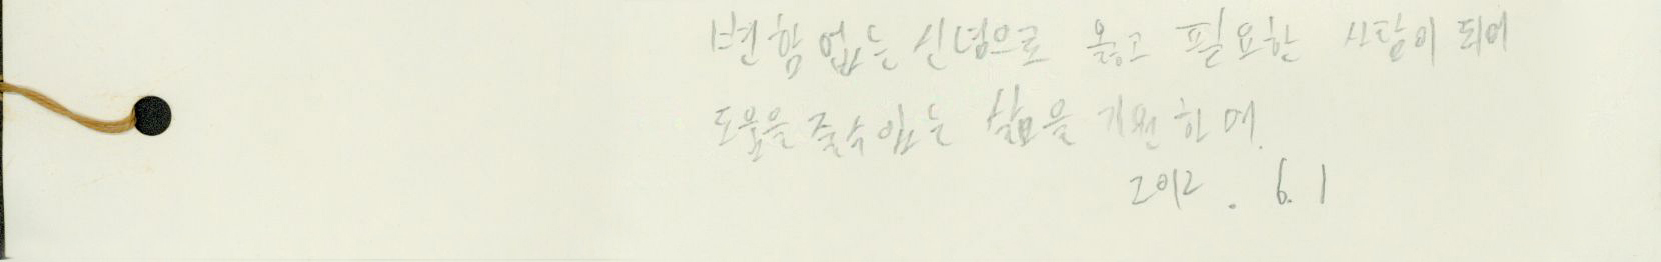 변함없는 신념으로 옳고 필요한 사람이 되어
도움을 줄 수 있는 삶을 기원하며.
2012. 6. 1